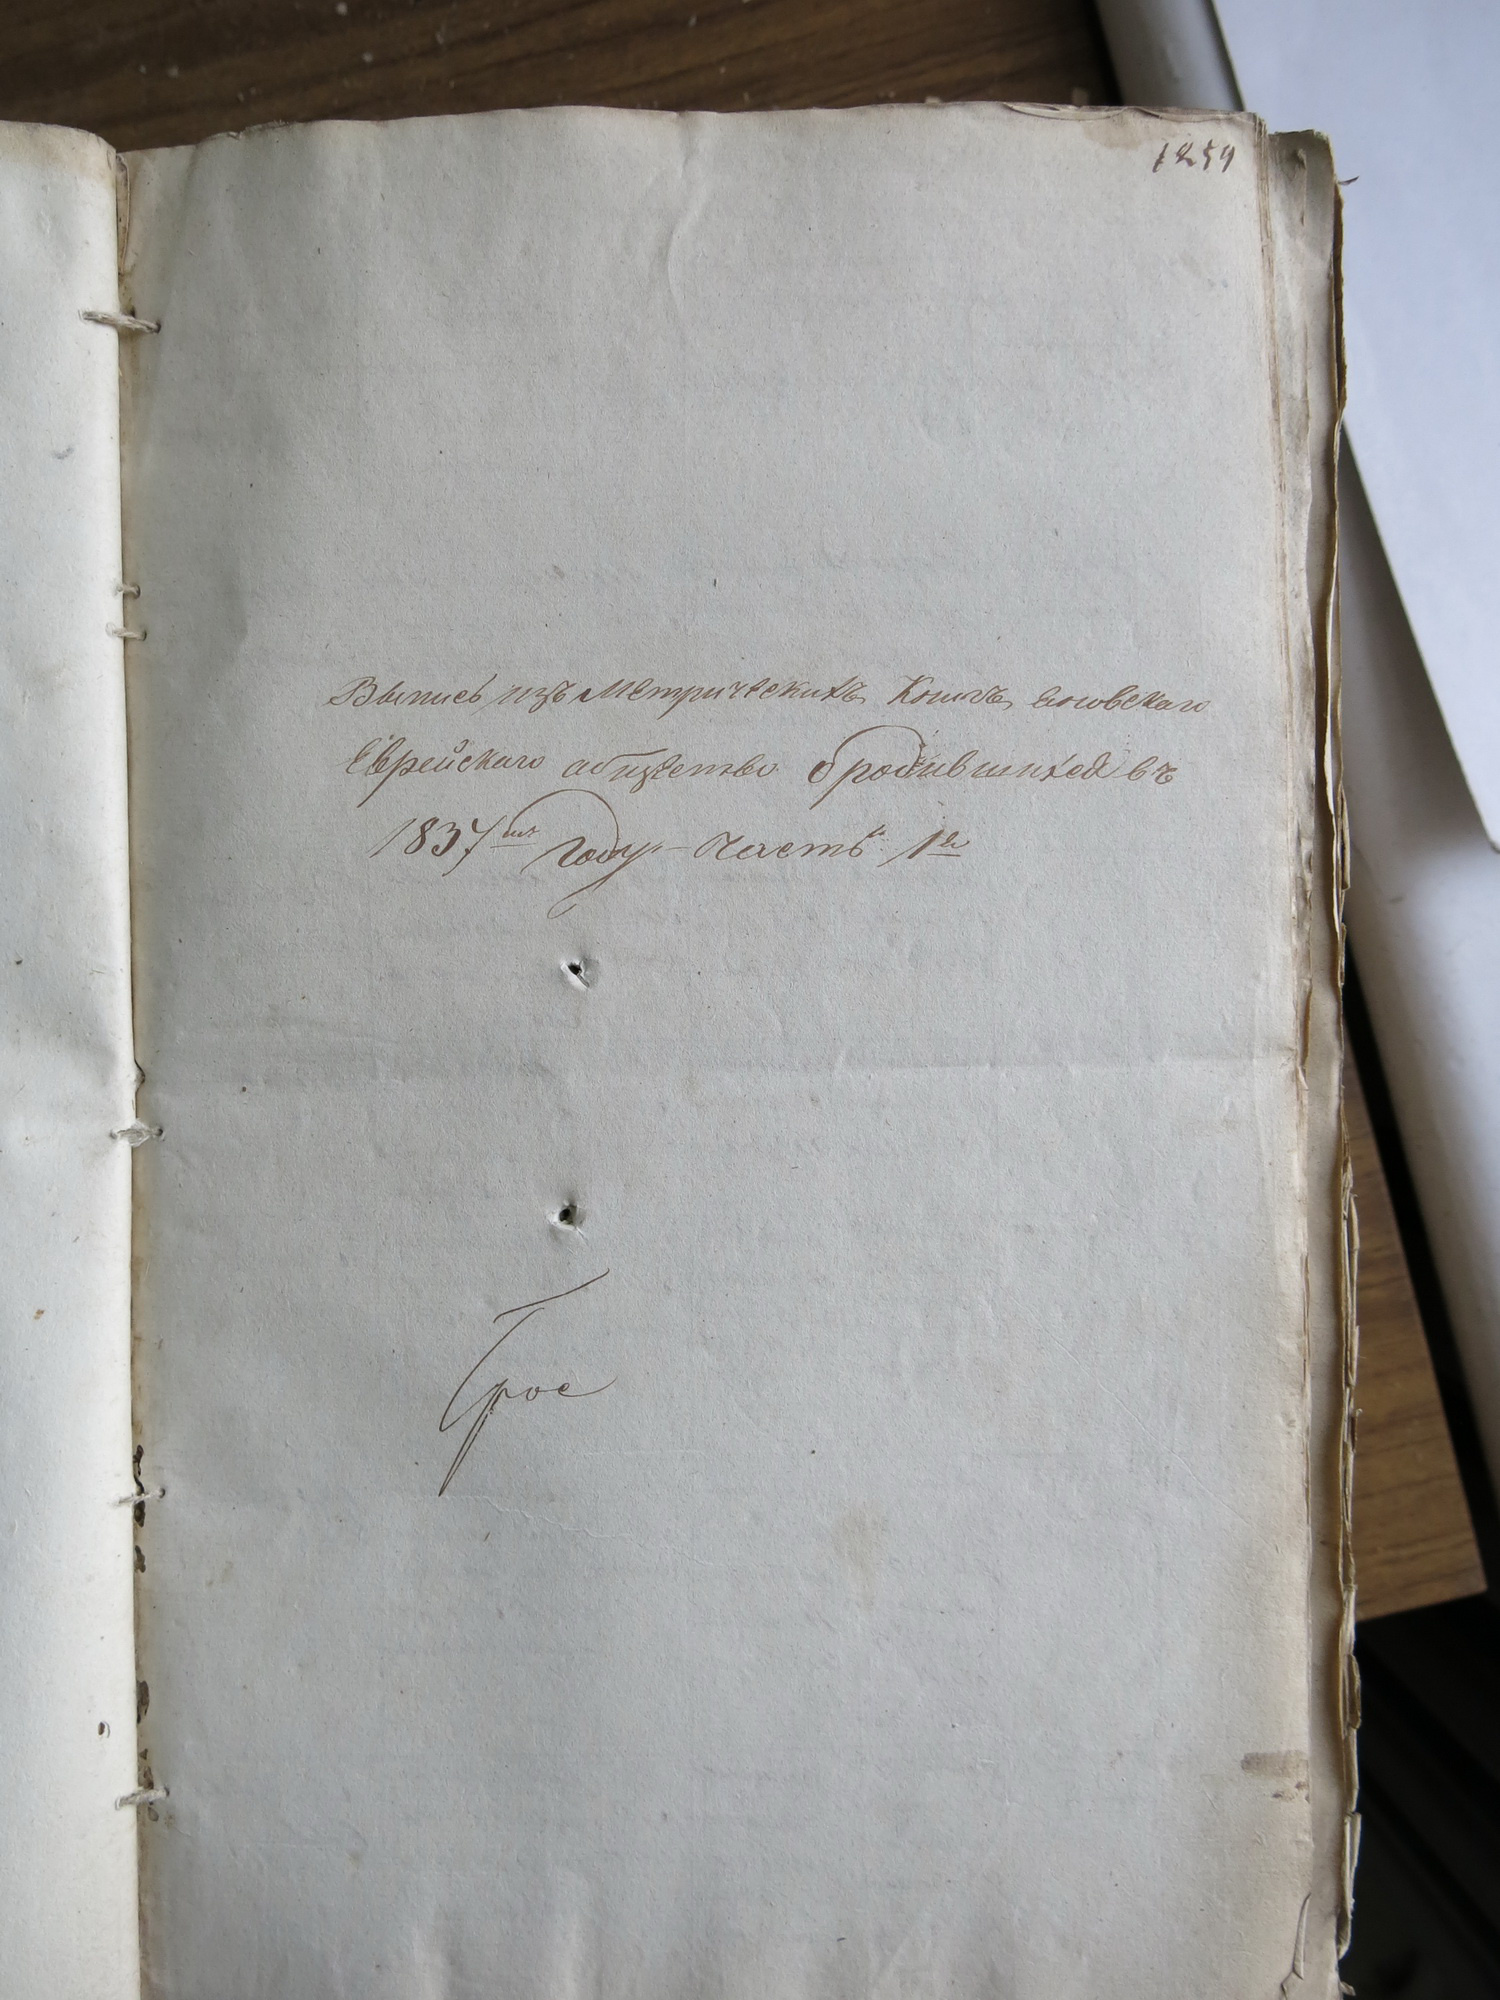 1259
Выпись изъ Метрическихъ Книгъ яновскаго
Еврейскаго абщество о родившихся въ
1837мъ году — Часть 1я
Грос